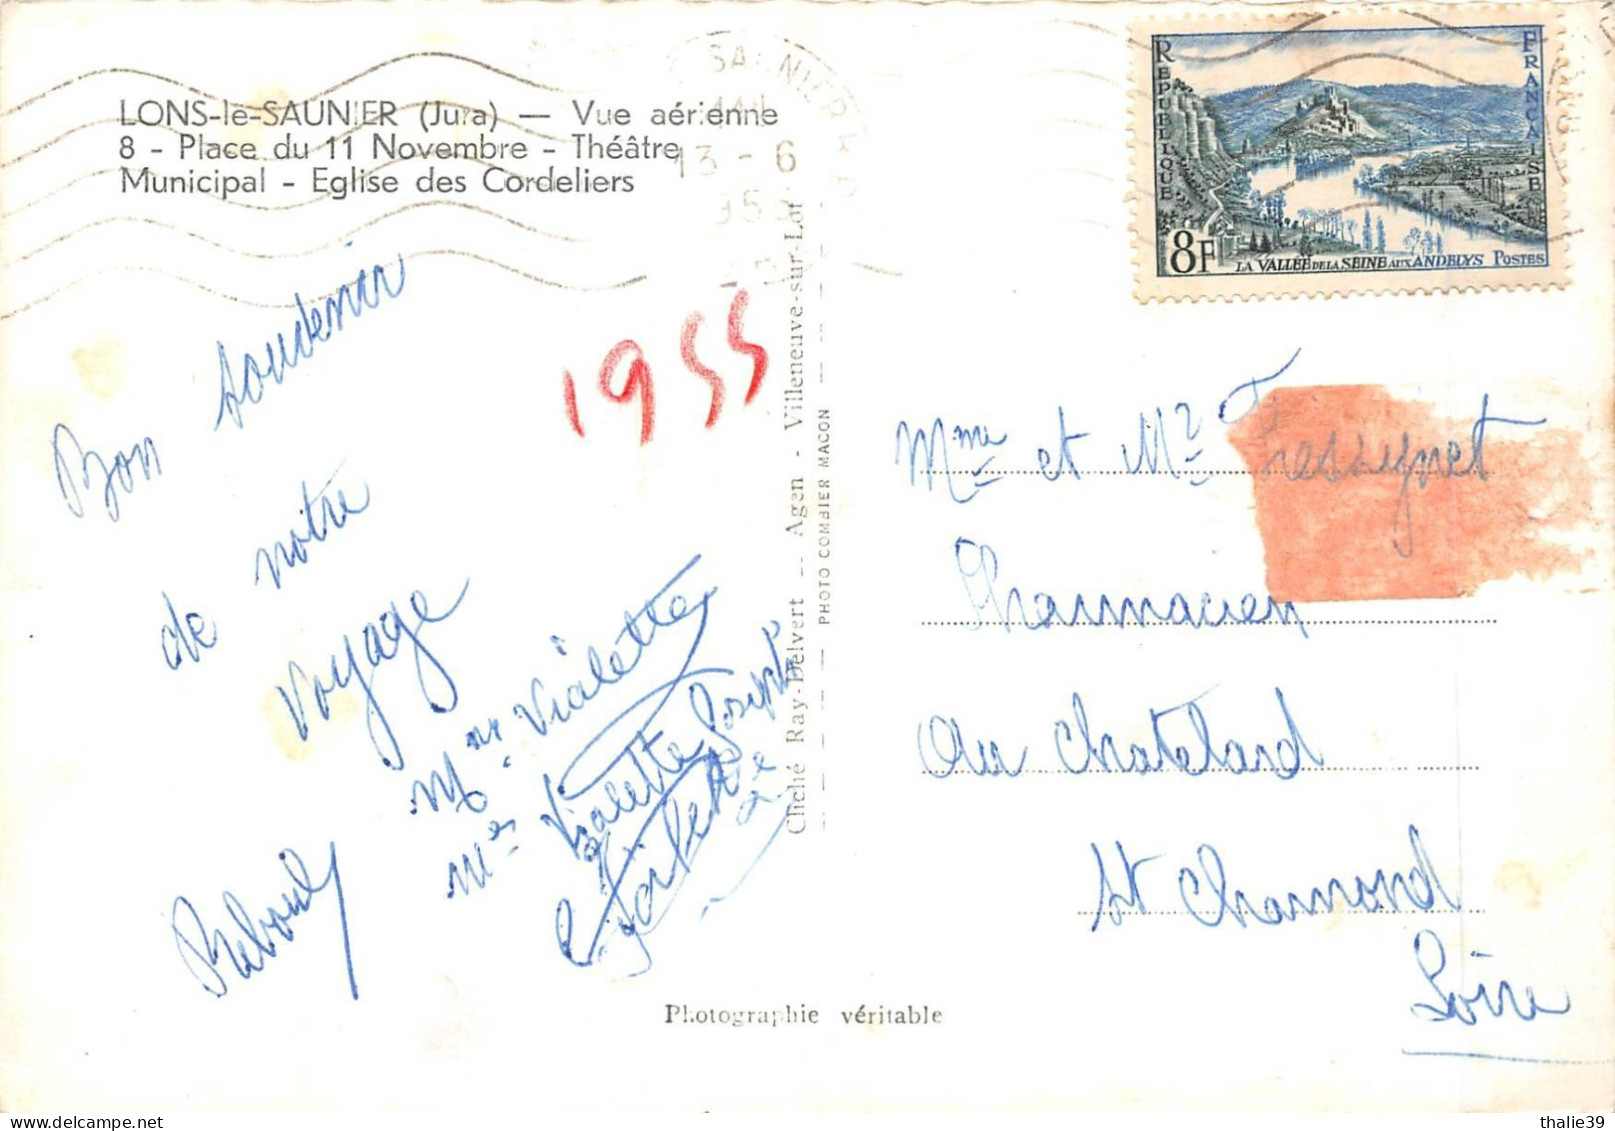 LONS-le-SAUNIER (Jura) — Vue aérienne
8 - Place du 11 Novembre - Théâtre
Municipal - Eglise des Cordeliers
SAUNIER
13 - 6
RÉPUBLIQUE FRANÇAISE
8F
LA VALLÉE DE LA SEINE AUX ANDELYS POSTES
1955
Bon souvenir
de notre
voyage
Mr Vialette
Vialette Joseph
Reboul
Cliché Ray-Delvert -- Agen - Villeneuve-sur-Lot
PHOTO COMBIER MACON
Mme et Mr Fressignet
Pharmacien
Au Chatelard
St Chamond
Loire
Photographie véritable
thalie39